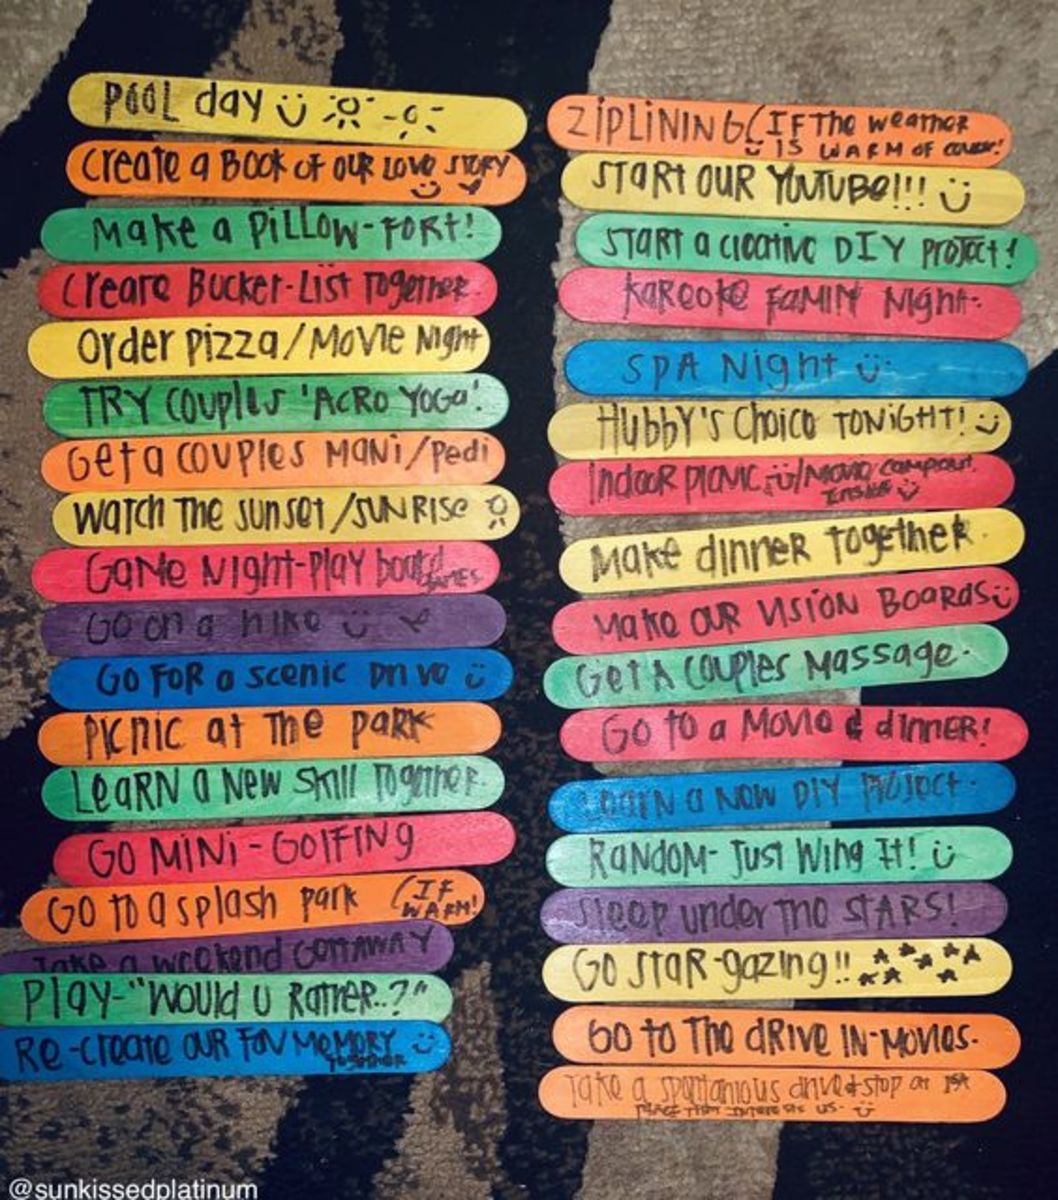 POOL day
Create a Book of our Love story
Make a Pillow-Fort!
Create Bucker-List Together.
Order Pizza/Movie Night
TRY COUPLES 'ACRO YOGA'.
Get a couples Mani/Pedi
Watch the sunset/SUNRISE
GAME Night-Play board
GAMES
GO on a hike
GO FOR a scenic Drive
Picnic at the park
LEARN a New Skill Together.
GO MINi-GOLFING
GO to a splash park (IF
WARM!
Take a weekend Gettaway
Play-"Would U Rather..?"
Re-create our Fav Memory
TOGETHER
ZIPLINING (IF The weather
IS WARM OF COURSE!
START OUR YOUTUBE!!!
START a creative DIY Project!
Kareoke Family Night.
SPA Night
Hubby's Choice TONIGHT!
Indoor Picnic /Movie Campout
Inside
Make dinner together.
Make our Vision Boards
Get A Couples Massage.
Go to a Movie & dinner!
Learn a New DIY Project.
Random- Just Wing It!
Sleep under the STARS!
GO Star-gazing!!
Go to The dRive IN-Movies.
Take a spontanious drive & stop at 1st
PLACE THAT INTERESTS US.
@sunkissedplatinum